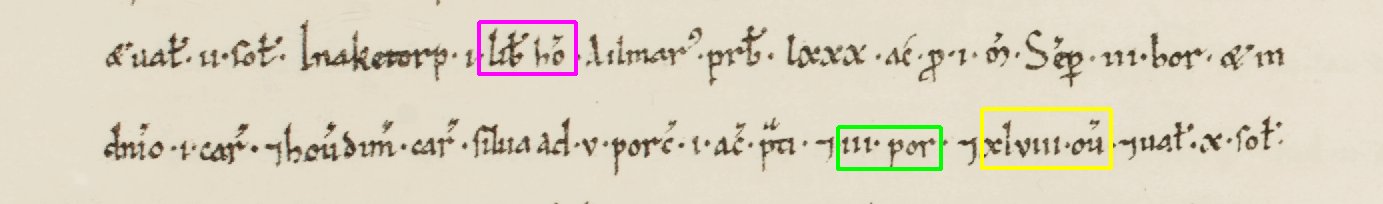 & ual̃ · ii · sol̃ · In aketorp · i · lib̃ hõ · Ailmar⁹ · prb̃ · lxxx · ac̃ · p̱ · i · m̃ · Sẽp̱ · iii · bor · & in
dñio · i · car̃ · ⁊ hoũ dim̃ · car̃ · silua ad · v · porc̃ · i · ac̃ · p̃ti · ⁊ iii · por · ⁊ xlviii · oũ · ⁊ ual̃ · x · sol̃ ·